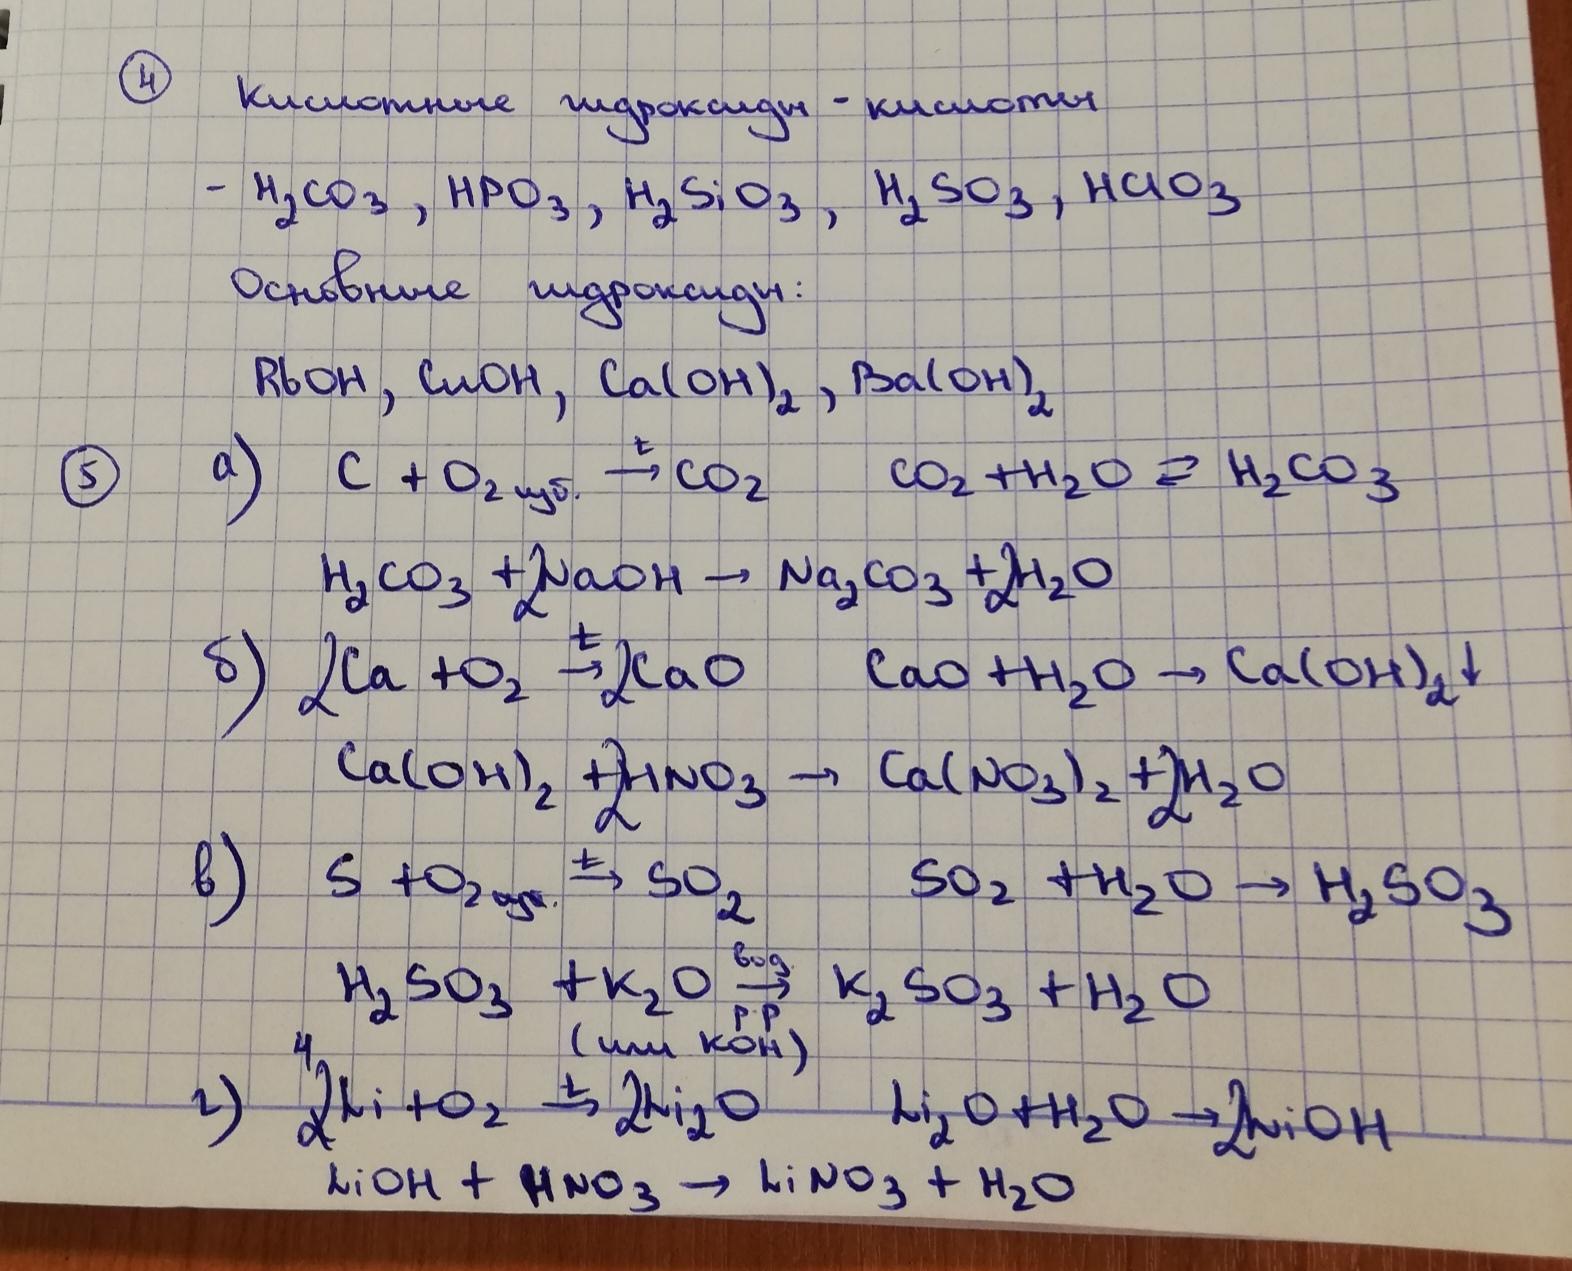 ④ Кислотные гидроксиды - кислоты
- H₂CO₃, HPO₃, H₂SiO₃, H₂SO₃, HClO₃
Основные гидроксиды:
RbOH, CuOH, Ca(OH)₂, Ba(OH)₂
⑤ а) C + O₂ изб. →ᵗ CO₂ CO₂ + H₂O ⇄ H₂CO₃
H₂CO₃ + 2NaOH → Na₂CO₃ + 2H₂O
б) 2Ca + O₂ →ᵗ 2CaO CaO + H₂O → Ca(OH)₂↓
Ca(OH)₂ + 2HNO₃ → Ca(NO₃)₂ + 2H₂O
в) S + O₂ изб. →ᵗ SO₂ SO₂ + H₂O → H₂SO₃
H₂SO₃ + K₂O вод. → р-р K₂SO₃ + H₂O
(или KOH)
4
г) 2Li + O₂ →ᵗ 2Li₂O Li₂O + H₂O → 2LiOH
LiOH + HNO₃ → LiNO₃ + H₂O